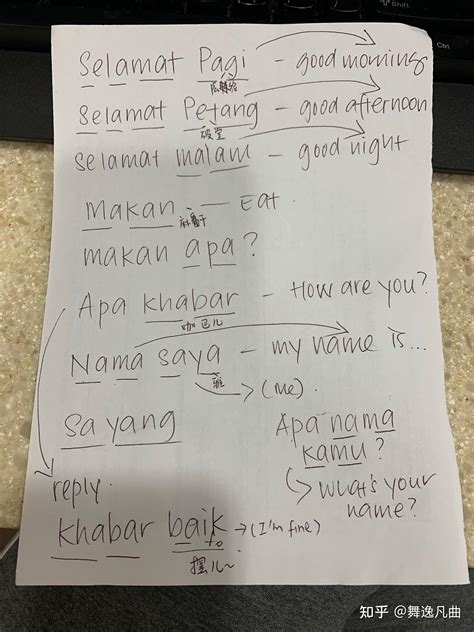 Selamat Pagi - good morning
Selamat Petang - good afternoon
破堂
Selamat malam - good night
makan - Eat.
makan apa?
Apa khabar - How are you?
咖巴儿
Nama saya - my name is...
雅 (me).
Sayang
Apa nama
kamu?
What's your
name?
reply.
khabar baik (I'm fine)
摆儿~
知乎 @舞逸凡曲
Shift
Ctrl